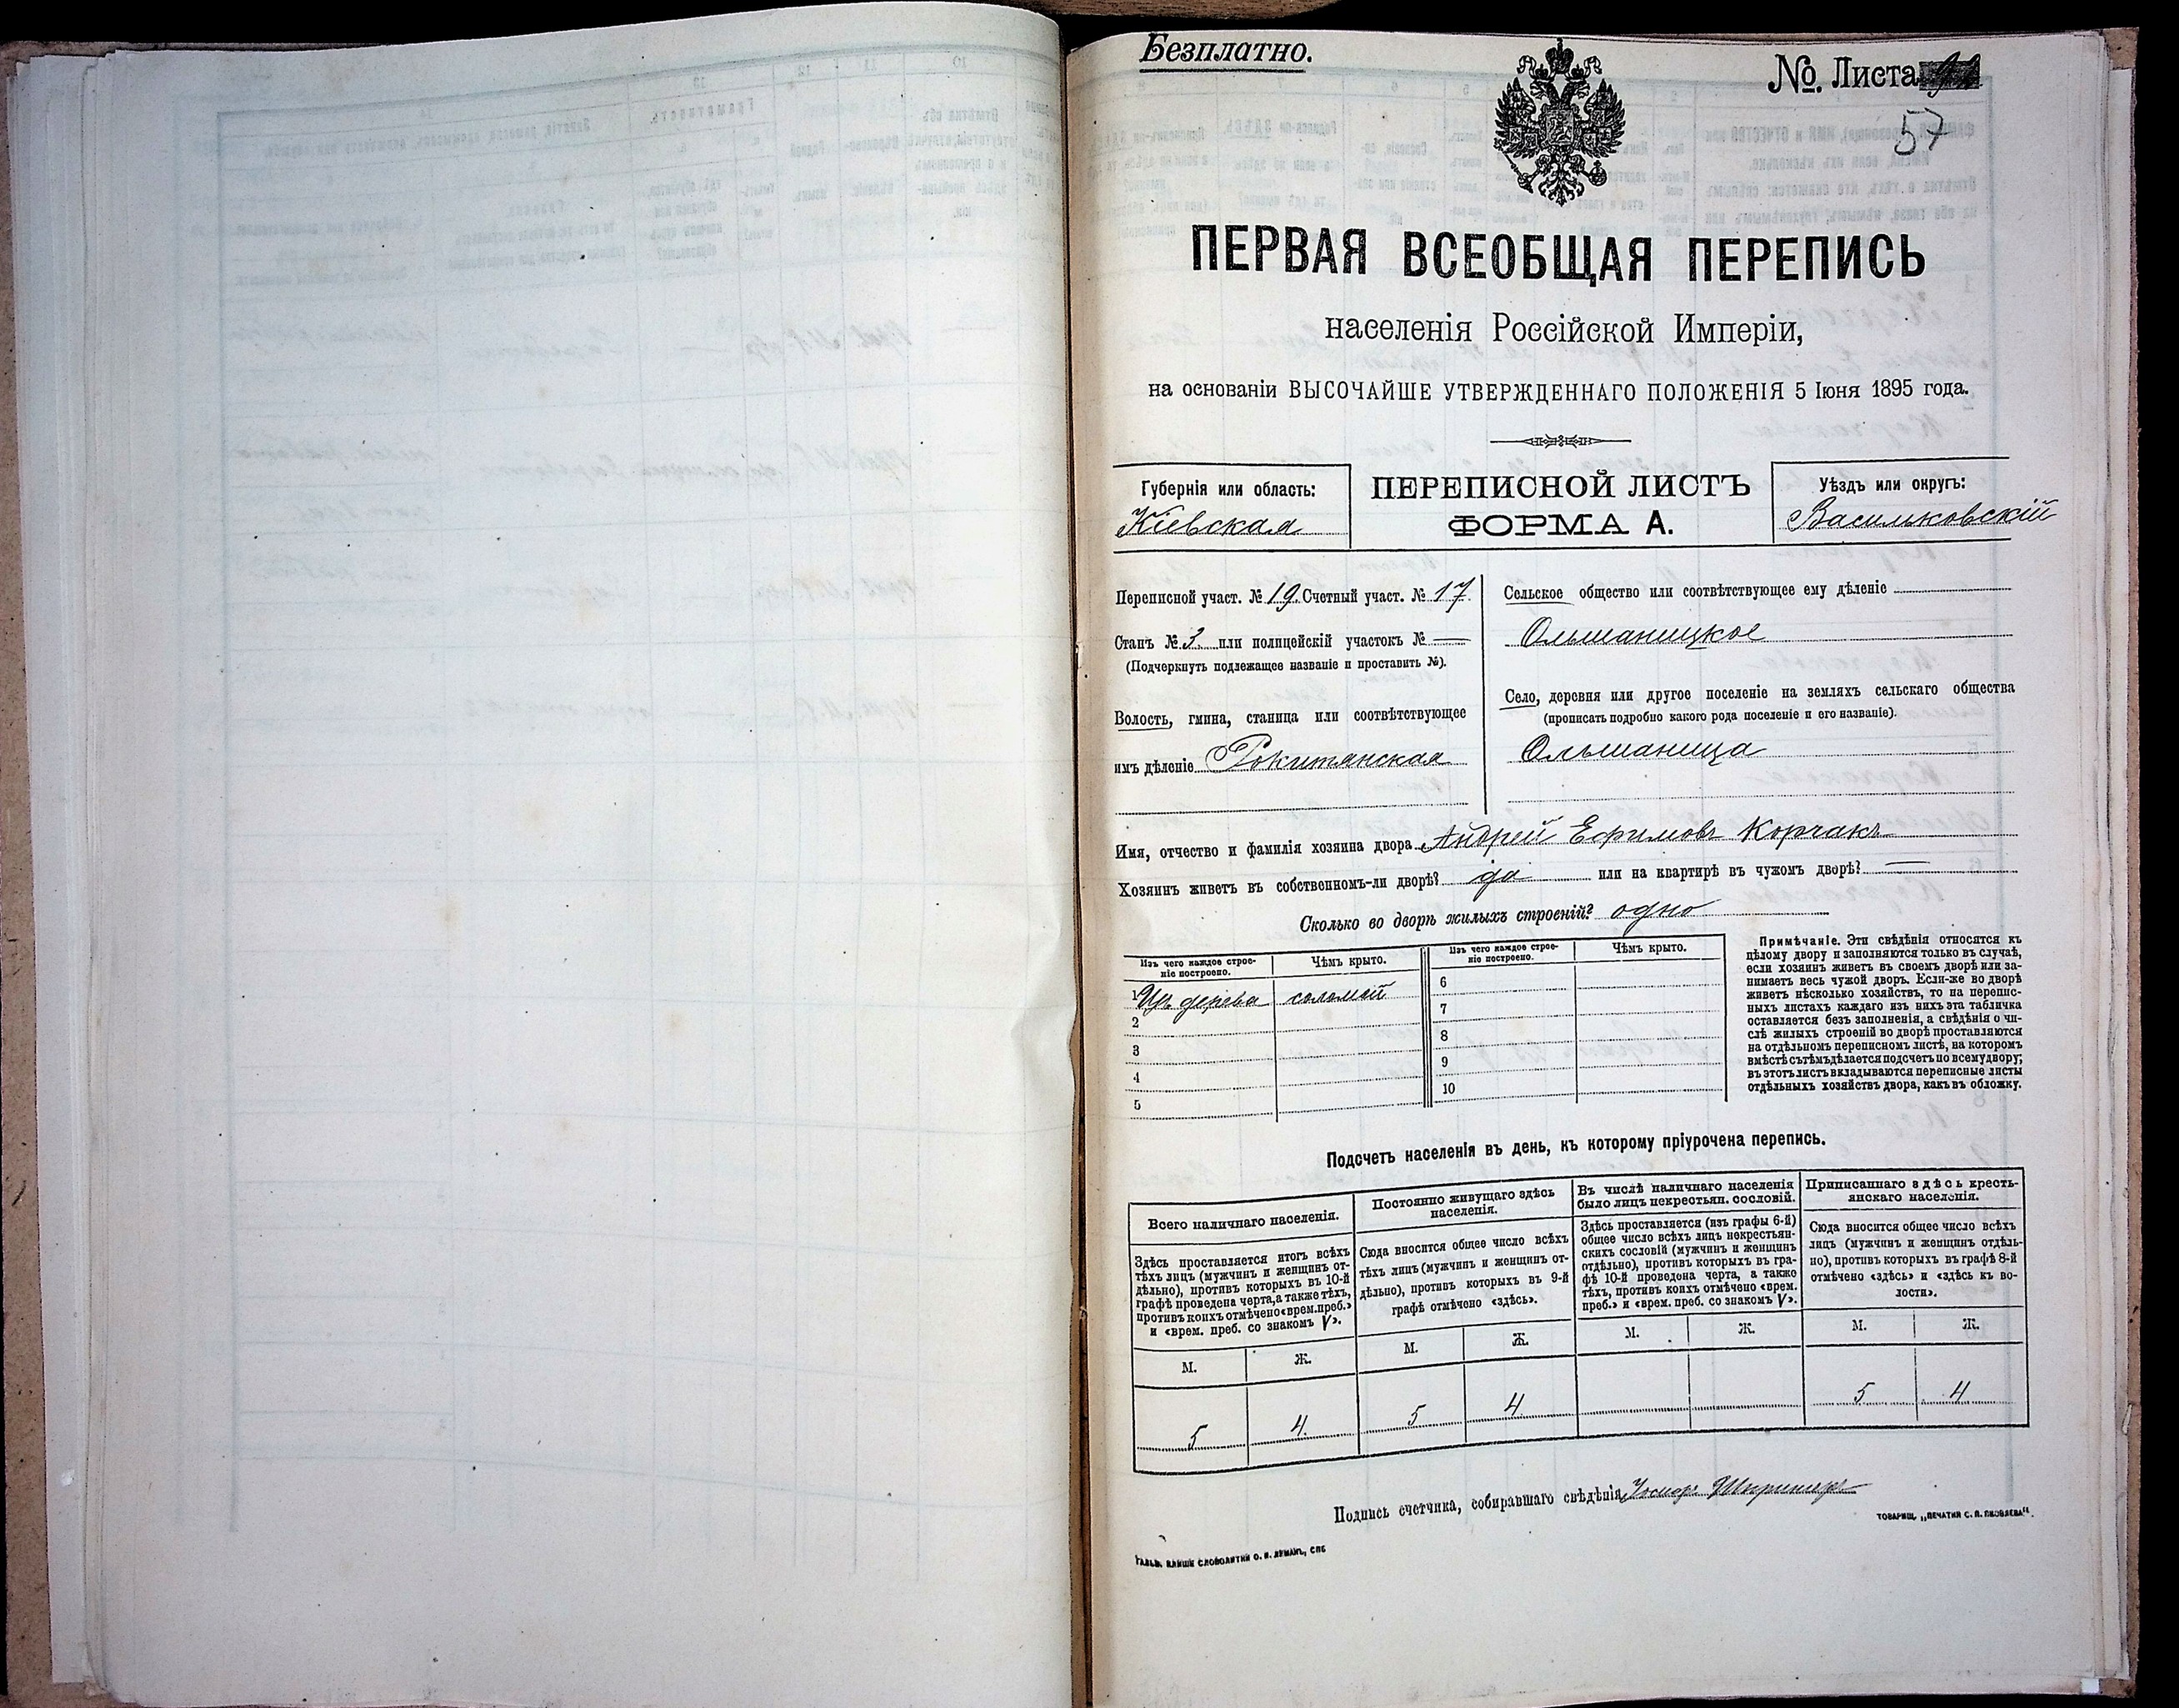 Безплатно.
№. Листа
57
ПЕРВАЯ ВСЕОБЩАЯ ПЕРЕПИСЬ
населенія Россійской Имперіи,
на основаніи ВЫСОЧАЙШЕ УТВЕРЖДЕННАГО ПОЛОЖЕНІЯ 5 Іюня 1895 года.
Губернія или область:
Кіевская
ПЕРЕПИСНОЙ ЛИСТЪ
ФОРМА А.
Уѣздъ или округъ:
Васильковскій
Переписной участ. № 19. Счетный участ. № 17
Станъ № 3 или полицейскій участокъ № —
(Подчеркнуть подлежащее названіе и проставить №).
Волость, гмина, станица или соотвѣтствующее
имъ дѣленіе Рокитянская
Сельское общество или соотвѣтствующее ему дѣленіе
Ольшаницкое
Село, деревня или другое поселеніе на земляхъ сельскаго общества
(прописать подробно какого рода поселеніе и его названіе).
Ольшаница
Имя, отчество и фамилія хозяина двора Андрей Ефимовъ Корчакъ
Хозяинъ живетъ въ собственномъ-ли дворѣ? да или на квартирѣ въ чужомъ дворѣ? —
Сколько во дворѣ жилыхъ строеній? одно
Изъ чего каждое строе-
ніе построено.
Чѣмъ крыто.
Изъ чего каждое строе-
ніе построено.
Чѣмъ крыто.
1 Изъ дерева соломой
2
3
4
5
6
7
8
9
10
Примѣчаніе. Эти свѣдѣнія относятся къ
цѣлому двору и заполняются только въ случаѣ,
если хозяинъ живетъ въ своемъ дворѣ или за-
нимаетъ весь чужой дворъ. Если-же во дворѣ
живетъ нѣсколько хозяйствъ, то на перепис-
ныхъ листахъ каждаго изъ нихъ эта табличка
оставляется безъ заполненія, а свѣдѣнія о чи-
слѣ жилыхъ строеній во дворѣ проставляются
на отдѣльномъ переписномъ листѣ, на которомъ
вмѣстѣ съ тѣмъ дѣлается подсчетъ по всему двору;
въ этотъ листъ вкладываются переписные листы
отдѣльныхъ хозяйствъ двора, какъ въ обложку.
Подсчетъ населенія въ день, къ которому пріурочена перепись.
Всего наличнаго населенія.
Здѣсь проставляется итогъ всѣхъ
тѣхъ лицъ (мужчинъ и женщинъ от-
дѣльно), противъ которыхъ въ 10-й
графѣ проведена черта, а также тѣхъ,
противъ коихъ отмѣчено «врем. преб.»
и «врем. преб. со знакомъ V».
М. Ж.
5 4
Постоянно живущаго здѣсь
населенія.
Сюда вносится общее число всѣхъ
тѣхъ лицъ (мужчинъ и женщинъ от-
дѣльно), противъ которыхъ въ 9-й
графѣ отмѣчено «здѣсь».
М. Ж.
5 4
Въ числѣ наличнаго населенія
было лицъ некрестьян. сословій.
Здѣсь проставляется (изъ графы 6-й)
общее число всѣхъ лицъ некрестьян-
скихъ сословій (мужчинъ и женщинъ
отдѣльно), противъ которыхъ въ гра-
фѣ 10-й проведена черта, а также
тѣхъ, противъ коихъ отмѣчено «врем.
преб.» и «врем. преб. со знакомъ V».
М. Ж.
Приписаннаго здѣсь кресть-
янскаго населенія.
Сюда вносится общее число всѣхъ
лицъ (мужчинъ и женщинъ отдѣль-
но), противъ которыхъ въ графѣ 8-й
отмѣчено «здѣсь» и «здѣсь къ во-
лости».
М. Ж.
5 4
Подпись счетчика, собиравшаго свѣдѣнія
ТОВАРИЩ. „ПЕЧАТНЯ С. П. ЯКОВЛЕВА“.
ГАЛЬВ. КЛИШЕ СЛОВОЛИТНИ О. И. ЛЕМАНЪ, СПБ